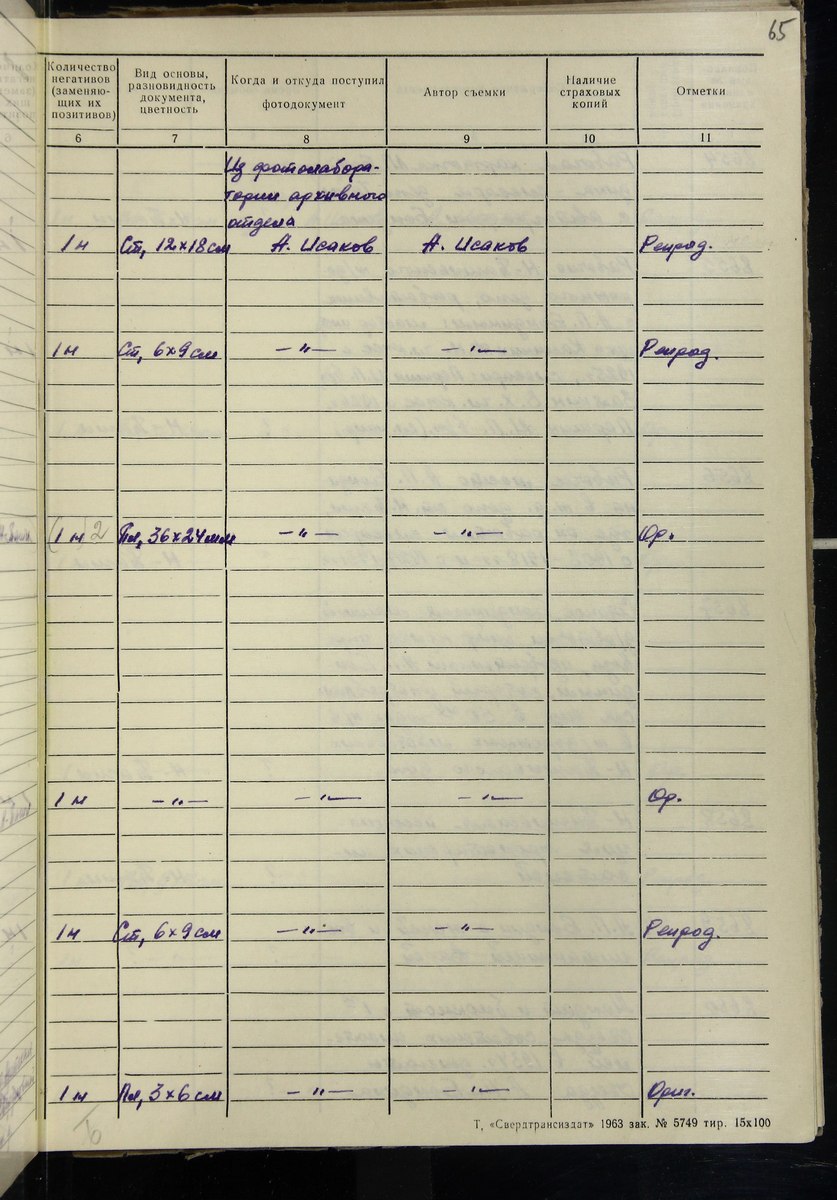 65
Количество
негативов
(заменяю-
щих их
позитивов)
Вид основы,
разновидность
документа,
цветность
Когда и откуда поступил
фотодокумент
Автор съемки
Наличие
страховых
копий
Отметки
6 7 8 9 10 11
Из фотолабора-
тории архивного
отдела
1 н Ст, 12×18 см А. Исаков А. Исаков Репрод.
1 н Ст, 6×9 см —„— —„— Репрод.
(1 н) 2 Пл, 36×24 мм —„— —„— Ор.
1 н —„— —„— —„— Ор.
1 н Ст, 6×9 см —„— —„— Репрод.
1 н Пл, 3×6 см —„— —„— Ориг.
Т, «Свердтрансиздат» 1963 зак. № 5749 тир. 15х100